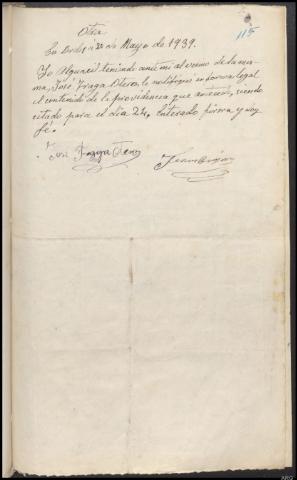 Otra
115
En Bordes á 20 de Mayo de 1939.
Yo Alguacil teniendo ante mi al vecino de la mis-
ma, José Fraga Otero, le notifiqué en forma legal
el contenido de la providencia que antecede, siendo
citado para el día 24, enterado firma y doy
fé.
José Fraga Otero
ARG